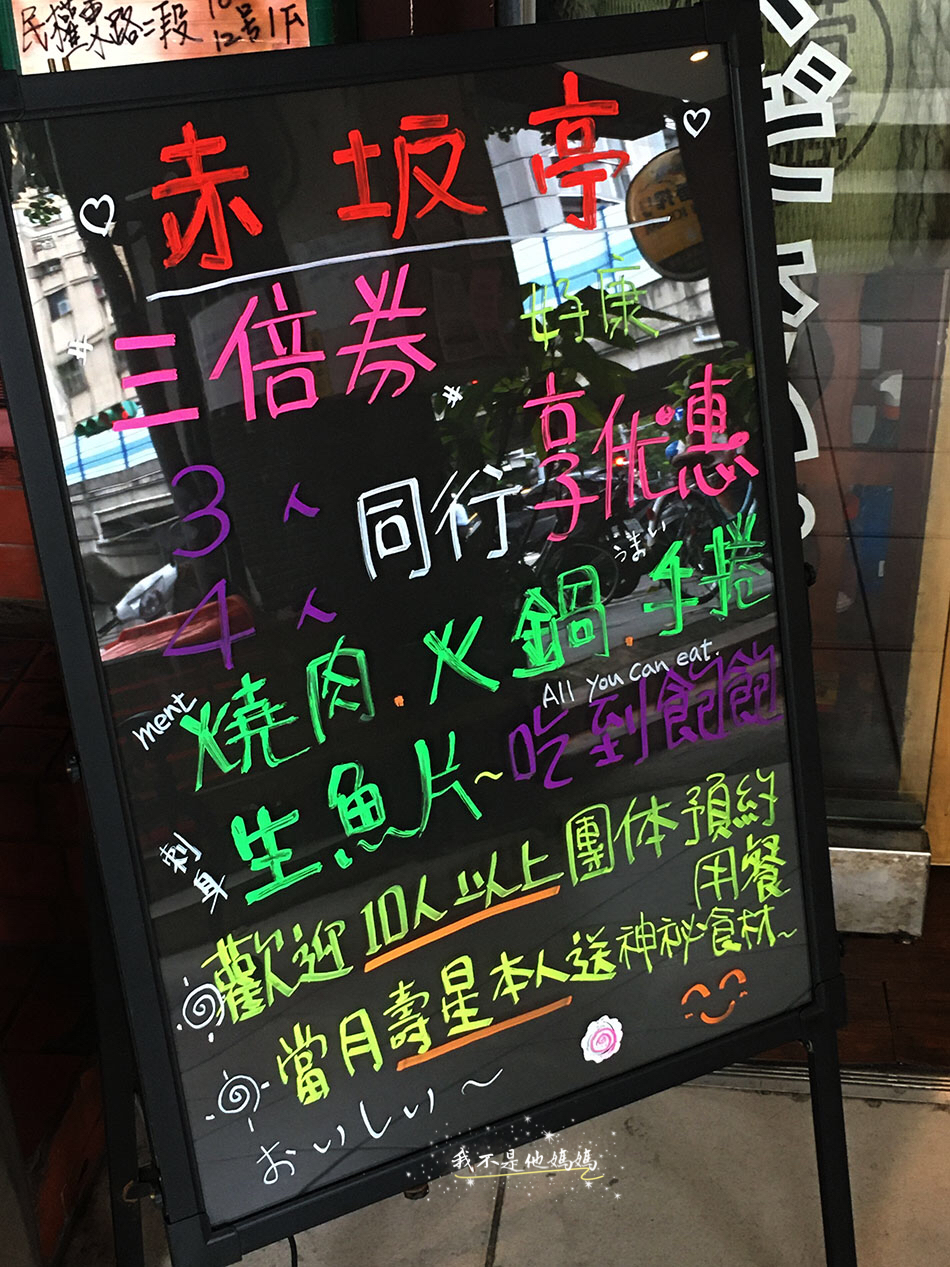 民權東路二段
12号1F
赤坂亭
三倍券 好康
3人
4人 同行享优惠
うまい
燒肉.火鍋.手捲
ment All You Can eat.
生魚片~吃到飽飽
刺身
歡迎10人以上團体預約
用餐
當月壽星本人送神祕食材~
おいしい~
我不是他媽媽